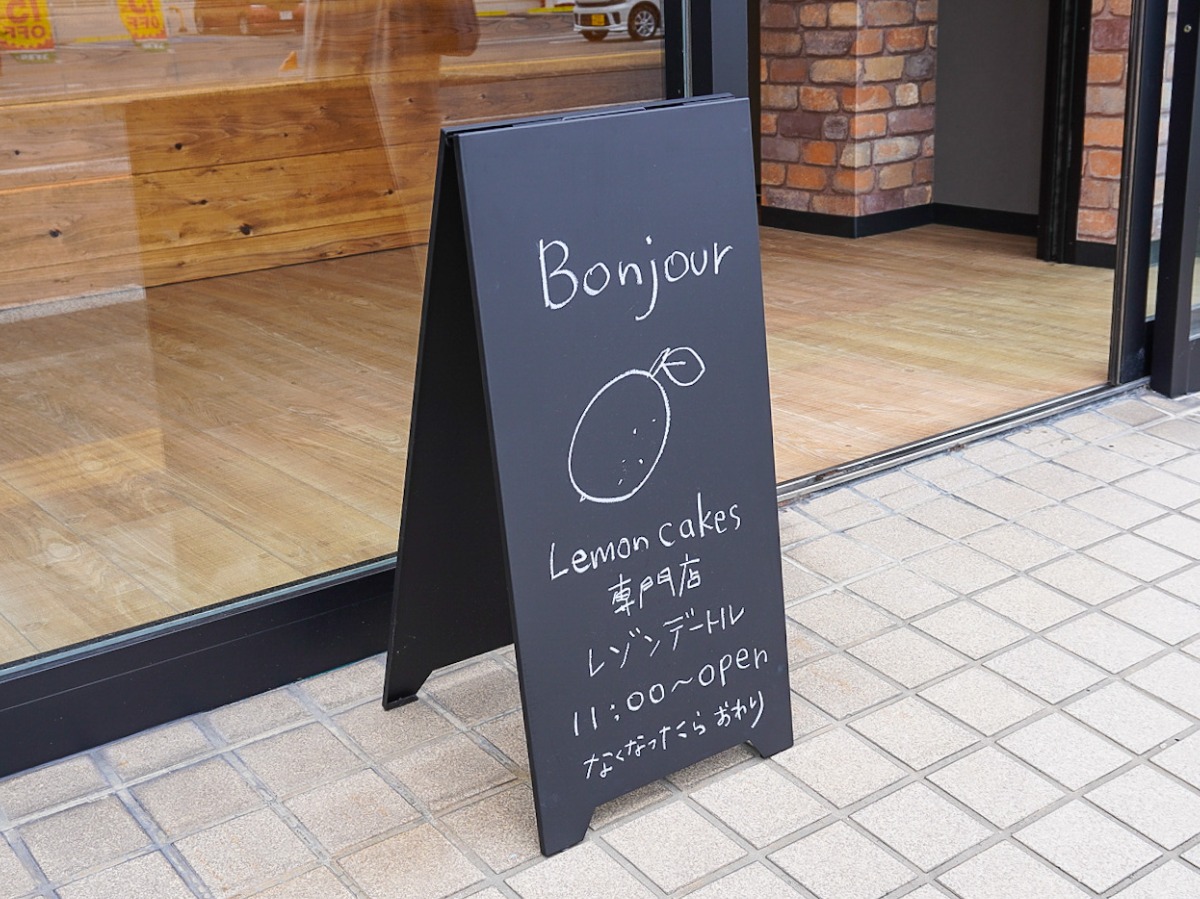 15
OFF
15
OFF
Bonjour
Lemon cakes
専門店
レゾンデートル
11:00〜open
なくなったらおわり